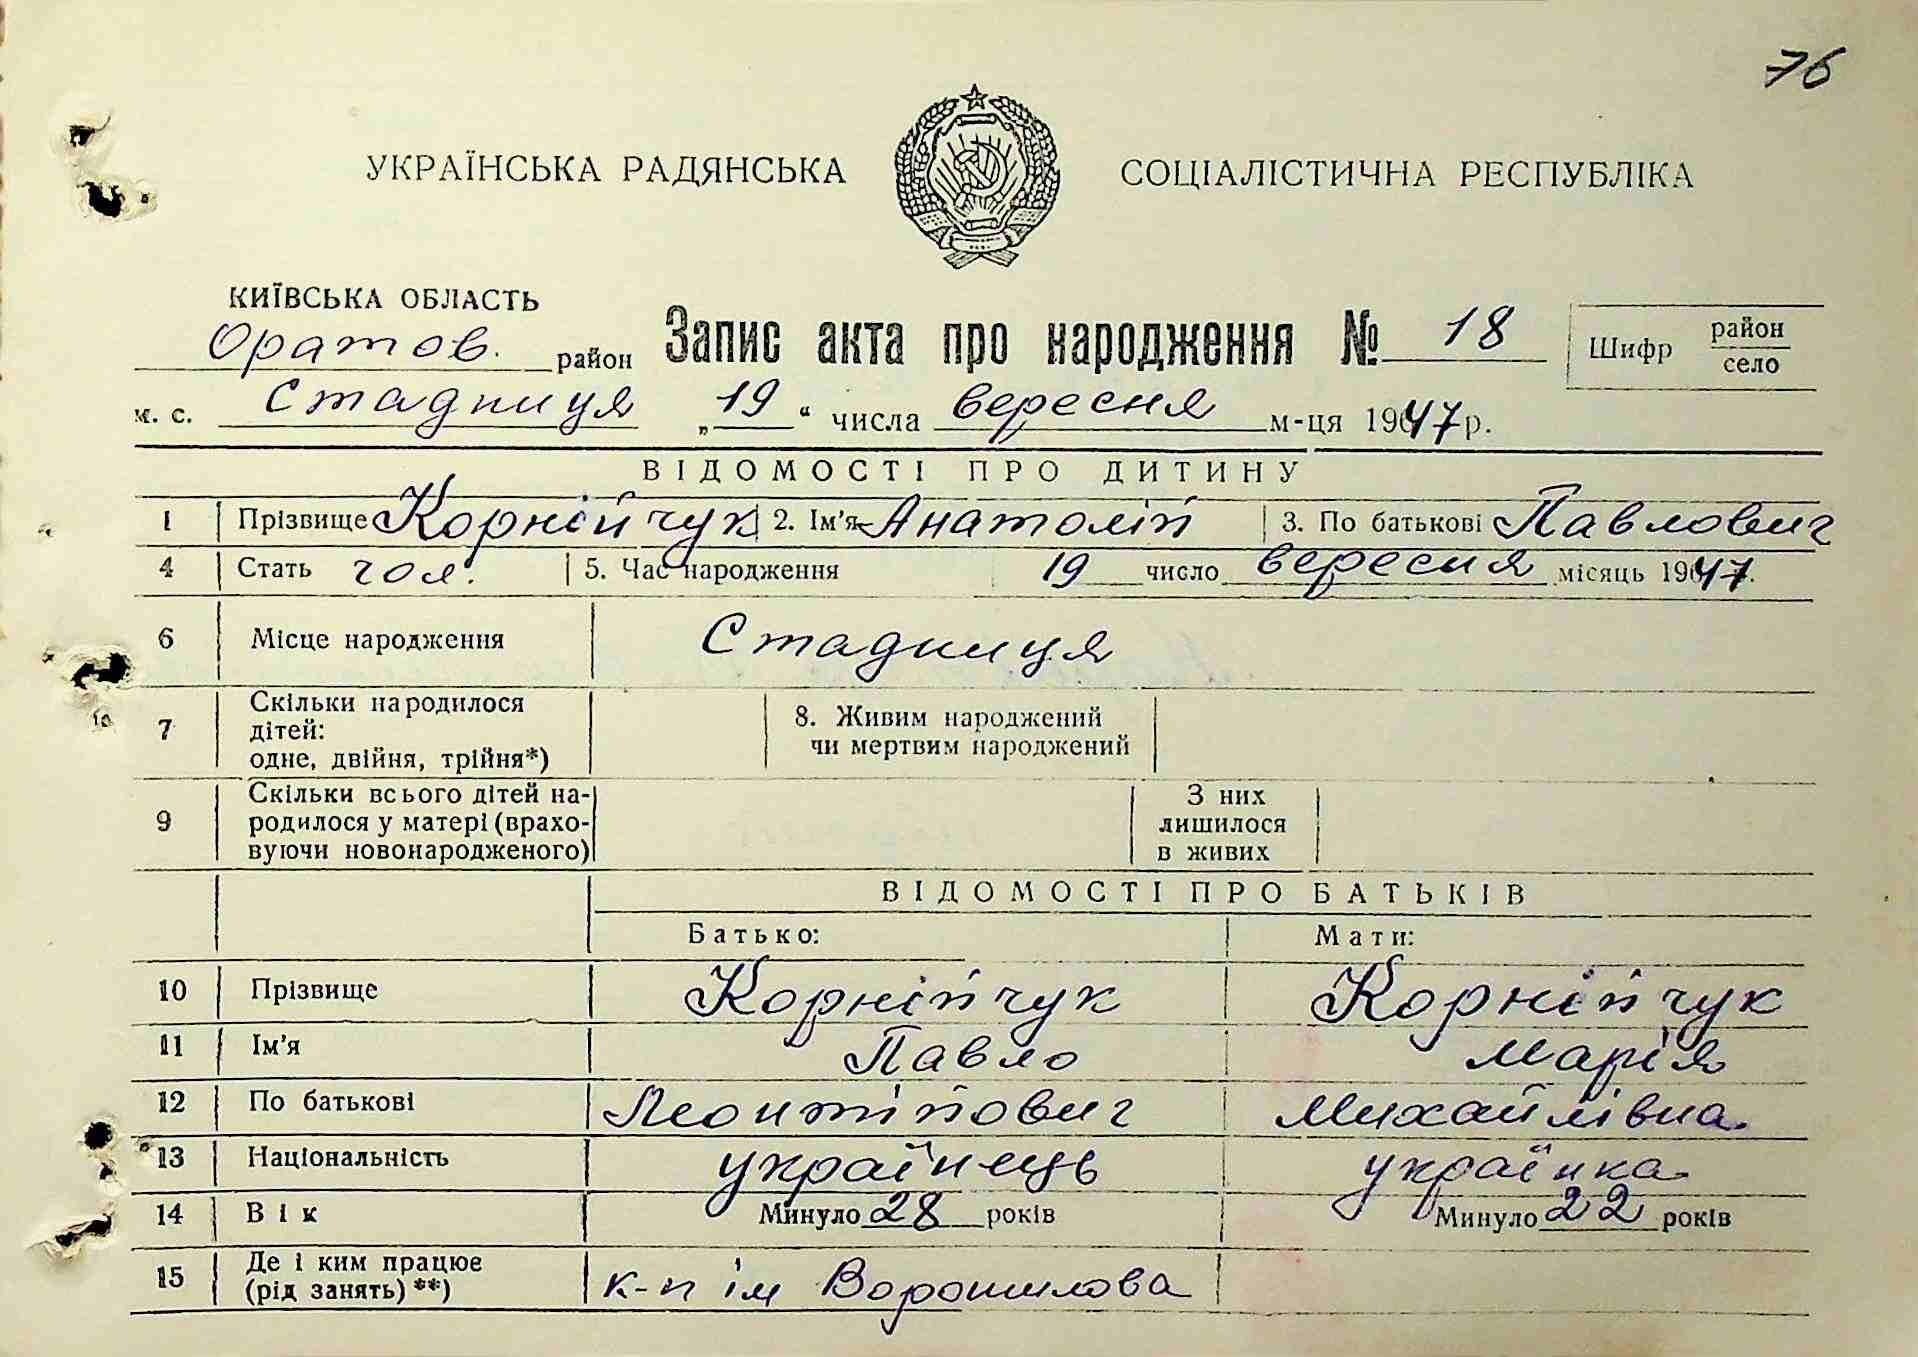 76
УКРАЇНСЬКА РАДЯНСЬКА СОЦІАЛІСТИЧНА РЕСПУБЛІКА
КИЇВСЬКА ОБЛАСТЬ
Оратов. район Запис акта про народження № 18 Шифр район село
м. с. Стадниця „19“ числа вересня м-ця 1947 р.
ВІДОМОСТІ ПРО ДИТИНУ
1 Прізвище Корнійчук 2. Ім'я Анатолій 3. По батькові Павлович
4 Стать чол. 5. Час народження 19 число вересня місяць 1947 р.
6 Місце народження Стадниця
7 Скільки народилося дітей: одне, двійня, трійня*) 8. Живим народжений чи мертвим народжений
9 Скільки всього дітей народилося у матері (враховуючи новонародженого) З них лишилося в живих
ВІДОМОСТІ ПРО БАТЬКІВ
Батько: Мати:
10 Прізвище Корнійчук Корнійчук
11 Ім'я Павло Марія
12 По батькові Леонтійович Михайлівна
13 Національність українець українка
14 Вік Минуло 28 років Минуло 22 років
15 Де і ким працює (рід занять) **) к-п ім Ворошилова